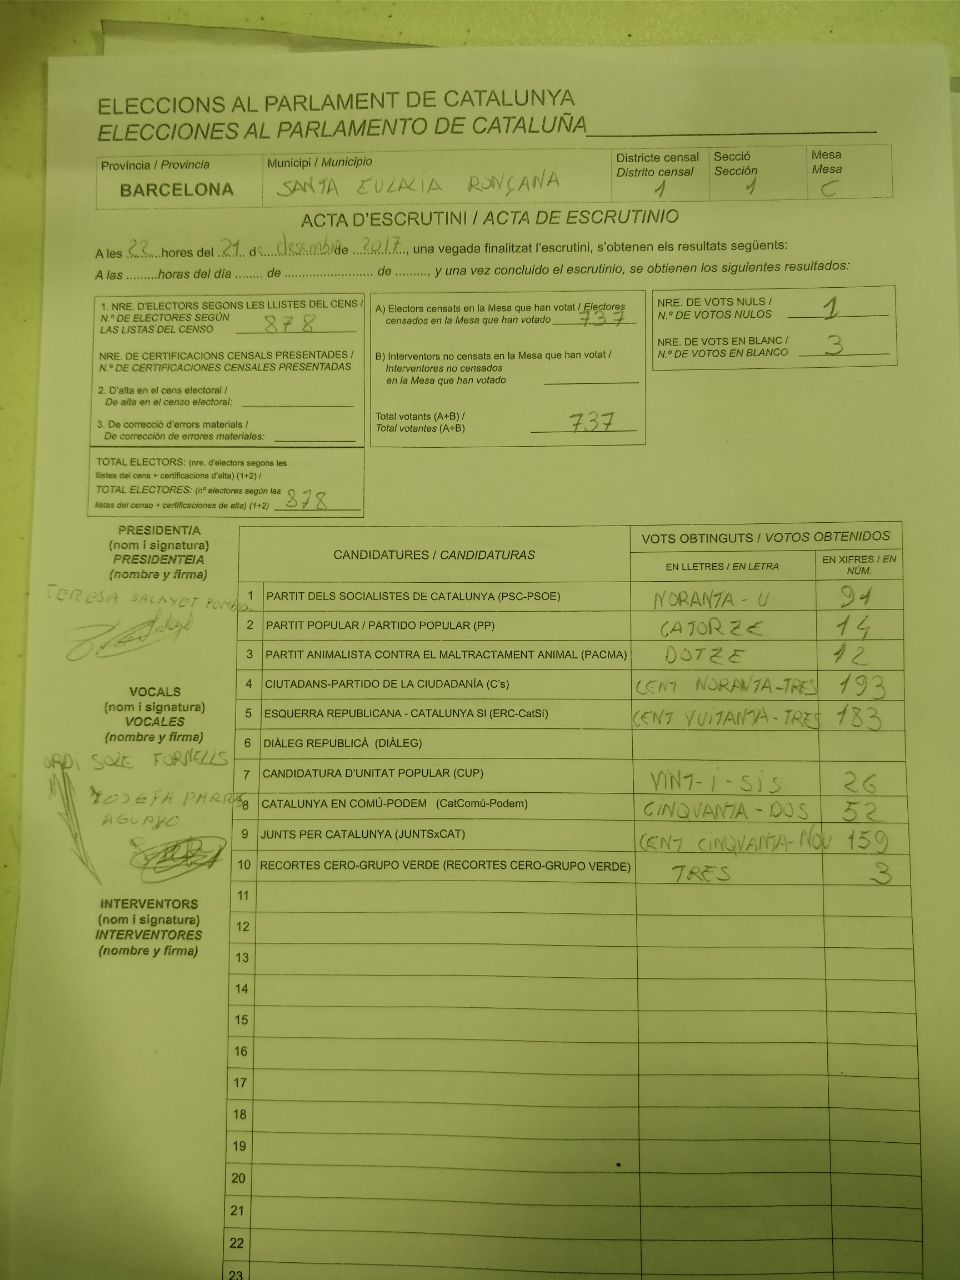 ELECCIONS AL PARLAMENT DE CATALUNYA
ELECCIONES AL PARLAMENTO DE CATALUÑA
Província / Provincia
BARCELONA
Municipi / Município
SANTA EULALIA RONÇANA
Districte censal
Distrito censal
1
Secció
Sección
1
Mesa
Mesa
C
ACTA D'ESCRUTINI / ACTA DE ESCRUTINIO
A les 22 hores del 21 d desembre de 2017, una vegada finalitzat l'escrutini, s'obtenen els resultats següents:
A las .........horas del día ........ de ........................ de ........., y una vez concluido el escrutinio, se obtienen los siguientes resultados:
1. NRE. D'ELECTORS SEGONS LES LLISTES DEL CENS /
N.º DE ELECTORES SEGÚN
LAS LISTAS DEL CENSO 878
NRE. DE CERTIFICACIONS CENSALS PRESENTADES /
N.º DE CERTIFICACIONES CENSALES PRESENTADAS
2. D'alta en el cens electoral /
De alta en el censo electoral:
3. De correcció d'errors materials /
De corrección de errores materiales:
TOTAL ELECTORS: (nre. d'electors segons les
llistes del cens + certificacions d'alta) (1+2) /
TOTAL ELECTORES: (nº electores según las
listas del censo + certificaciones de alta) (1+2) 878
A) Electors censats en la Mesa que han votat / Electores
censados en la Mesa que han votado 737
B) Interventors no censats en la Mesa que han votat /
Interventores no censados
en la Mesa que han votado
Total votants (A+B) /
Total votantes (A+B) 737
NRE. DE VOTS NULS /
N.º DE VOTOS NULOS 1
NRE. DE VOTS EN BLANC /
N.º DE VOTOS EN BLANCO 3
PRESIDENT/A
(nom i signatura)
PRESIDENTE/A
(nombre y firma)
TERESA SALAYET
VOCALS
(nom i signatura)
VOCALES
(nombre y firma)
ORDI SOLE FORNELLS
JOSEFA PARRA
AGUAYO
INTERVENTORS
(nom i signatura)
INTERVENTORES
(nombre y firma)
CANDIDATURES / CANDIDATURAS
VOTS OBTINGUTS / VOTOS OBTENIDOS
EN LLETRES / EN LETRA
EN XIFRES / EN
NÚM.
1 PARTIT DELS SOCIALISTES DE CATALUNYA (PSC-PSOE) NORANTA - U 91
2 PARTIT POPULAR / PARTIDO POPULAR (PP) CATORZE 14
3 PARTIT ANIMALISTA CONTRA EL MALTRACTAMENT ANIMAL (PACMA) DOTZE 12
4 CIUTADANS-PARTIDO DE LA CIUDADANÍA (C's) CENT NORANTA-TRES 193
5 ESQUERRA REPUBLICANA - CATALUNYA SI (ERC-CatSí) CENT VUITANTA - TRES 183
6 DIÀLEG REPUBLICÀ (DIÀLEG)
7 CANDIDATURA D'UNITAT POPULAR (CUP) VINT-i-SIS 26
8 CATALUNYA EN COMÚ-PODEM (CatComú-Podem) CINQVANTA - DOS 52
9 JUNTS PER CATALUNYA (JUNTSxCAT) CENT CINQVANTA-NOU 159
10 RECORTES CERO-GRUPO VERDE (RECORTES CERO-GRUPO VERDE) TRES 3
11
12
13
14
15
16
17
18
19
20
21
22
23